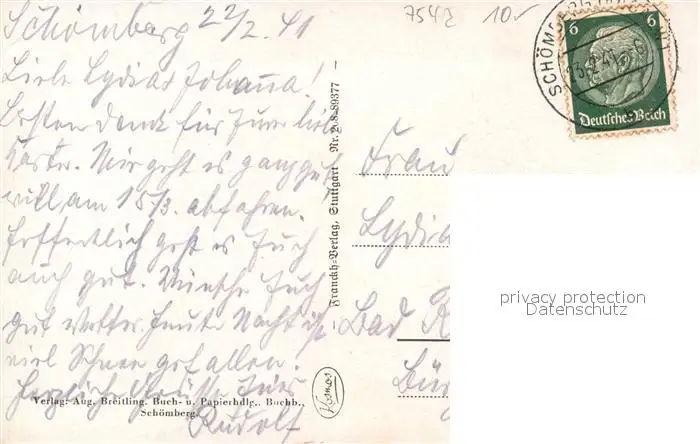 Schömberg 22/2. 41
Liebe Lydia & Johanna!
Besten Dank für Eure liebe
Karte. Mir geht es ganz gut
will am 15/3. abfahren.
Hoffentlich geht es Euch
auch gut. Wünsche Euch
gut Wetter. Heute Nacht ist
viel Schnee gefallen.
Herzliche Grüsse Euer
Rudolf
Verlag: Aug. Breitling, Buch- u. Papierhdlg., Buchb.,
Schömberg.
Franckh-Verlag, Stuttgart Nr. 2.8-89377
Kosmos
7542
10
SCHÖMBERG
6 6
Deutsches Reich
Frau
Lydia
Bad
privacy protection
Datenschutz